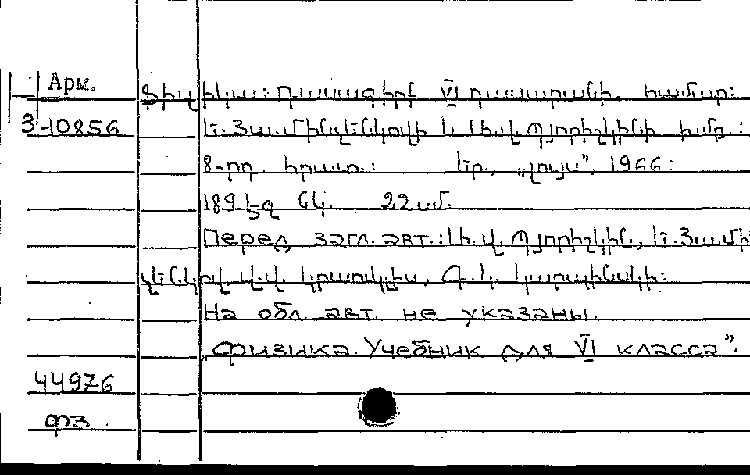 Арм.
Ֆիզիկա: Դասագիրք VI դասարանի համար:
3-10856
Ե. Յա. Մինչենկովի և Ի. Վ. Պյորիշկինի խմբ.:
8-րդ հրատ.: Եր., „Լույս”, 1966:
189 էջ նկ. 22 սմ.
Перед загл. авт.: Ի. Վ. Պյորիշկին, Ե. Յա. Մի
Կրաուկլիս,
На обл. авт. не указаны.
„Физика. Учебник для VI класса”.
44976
фз.